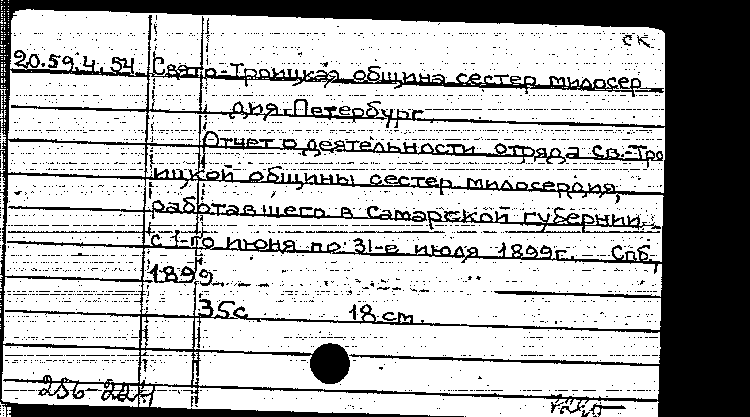 СК
20.59.4.54 Свято-Троицкая община сестер милосер
дия. Петербург.
Отчет о деятельности отряда Св.-Тро
ицкой общины сестер милосердия,
работавшего в Самарской губернии
с 1-го июня по 31-е июля 1899г. Спб,
1899
35с 18 cm.